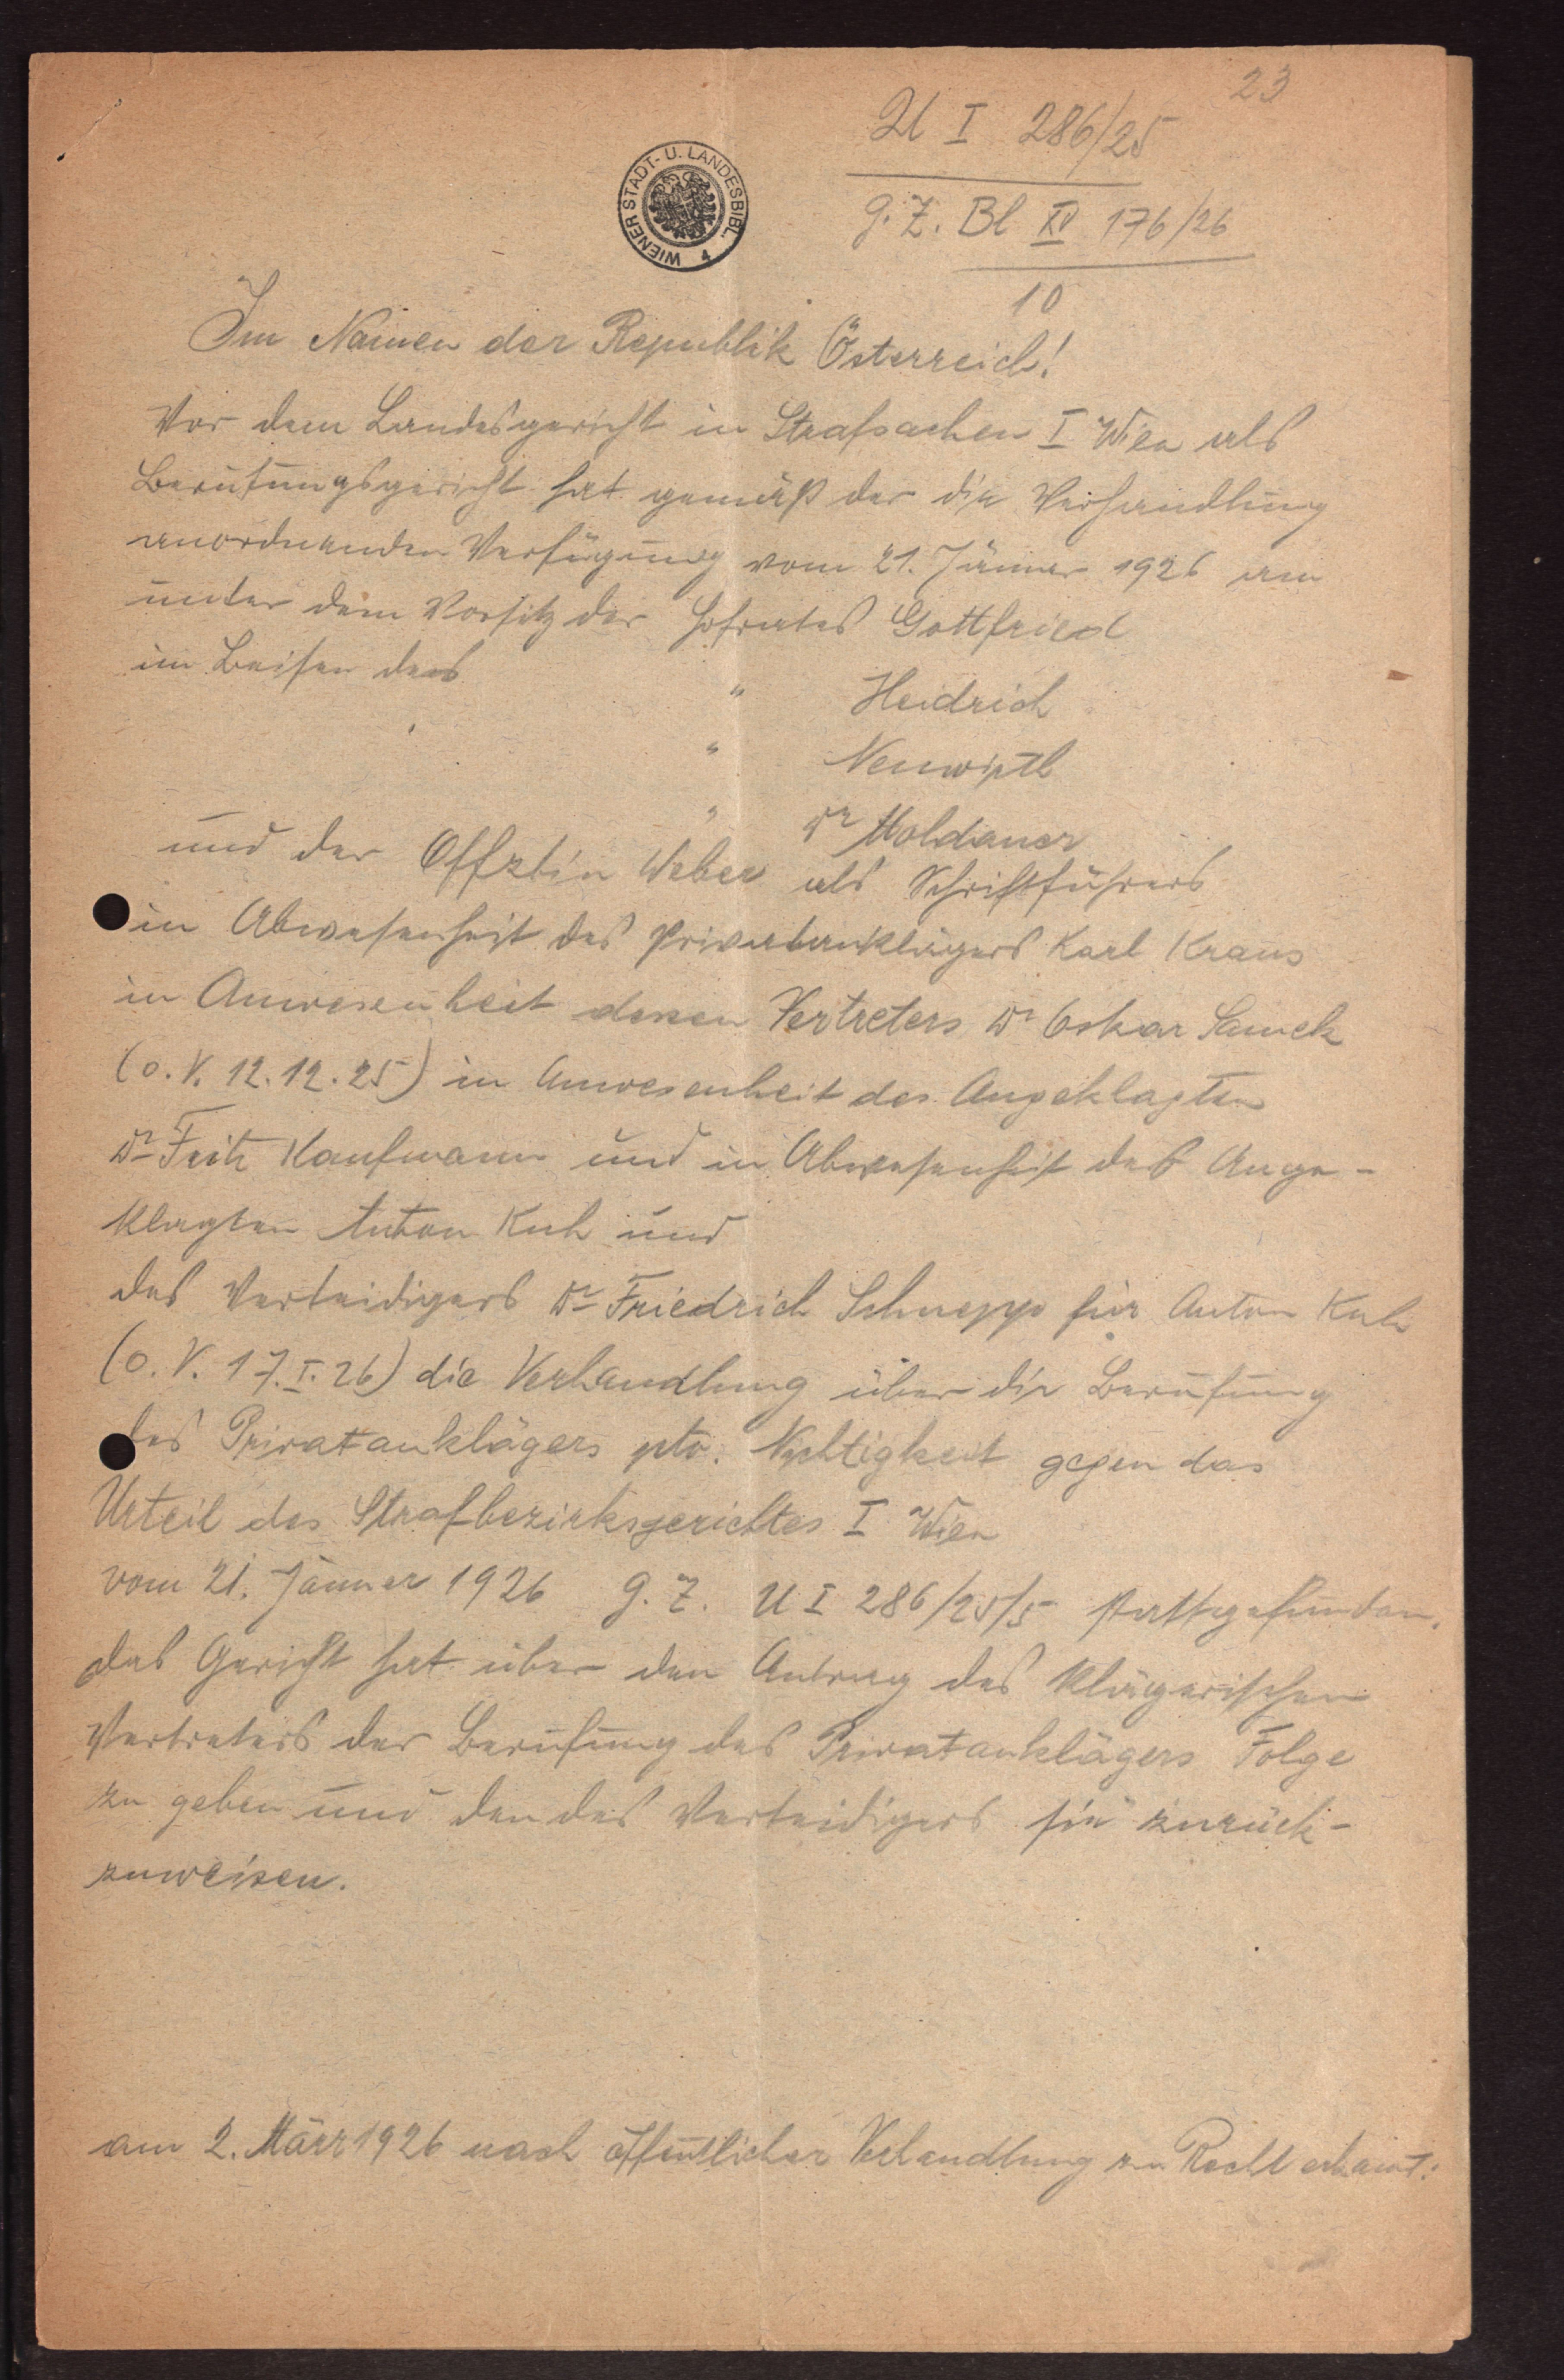 23
U I 286/25
G. Z. Bl XV 176/26
10
WIENER STADT- U. LANDESBIBL. 4
Im Namen der Republik Österreich!
Vor dem Landesgericht in Strafsachen I Wien als
Berufungsgericht hat gemäß der die Verhandlung
anordnenden Verfügung vom 21. Jänner 1926 am
unter dem Vorsitz des Hofrates Gottfried
im Beisein des " Heidrich
" Neuwirth
" Dr Moldauer
und der Offztin Weber als Schriftführers
in Abwesenheit des Privatanklägers Karl Kraus
in Anwesenheit dessen Vertreters Dr Oskar Samek
(o. V. 12.12.25) in Anwesenheit des Angeklagten
Dr Fritz Kaufmann und in Abwesenheit des Ange-
klagten Anton Kuh und
des Verteidigers Dr Friedrich Schnepp für Anton Kuh
(o. V. 17.I.26) die Verhandlung über die Berufung
des Privatanklägers pto. Nichtigkeit gegen das
Urteil des Strafbezirksgerichtes I Wien
vom 21. Jänner 1926 G. Z. U I 286/25/5 stattgefunden.
Das Gericht hat über den Antrag des klägerischen
Vertreters der Berufung des Privatanklägers Folge
zu geben und den des Verteidigers sie zurück-
zuweisen.
am 2. März 1926 nach öffentlicher Verhandlung zu Recht erkannt: